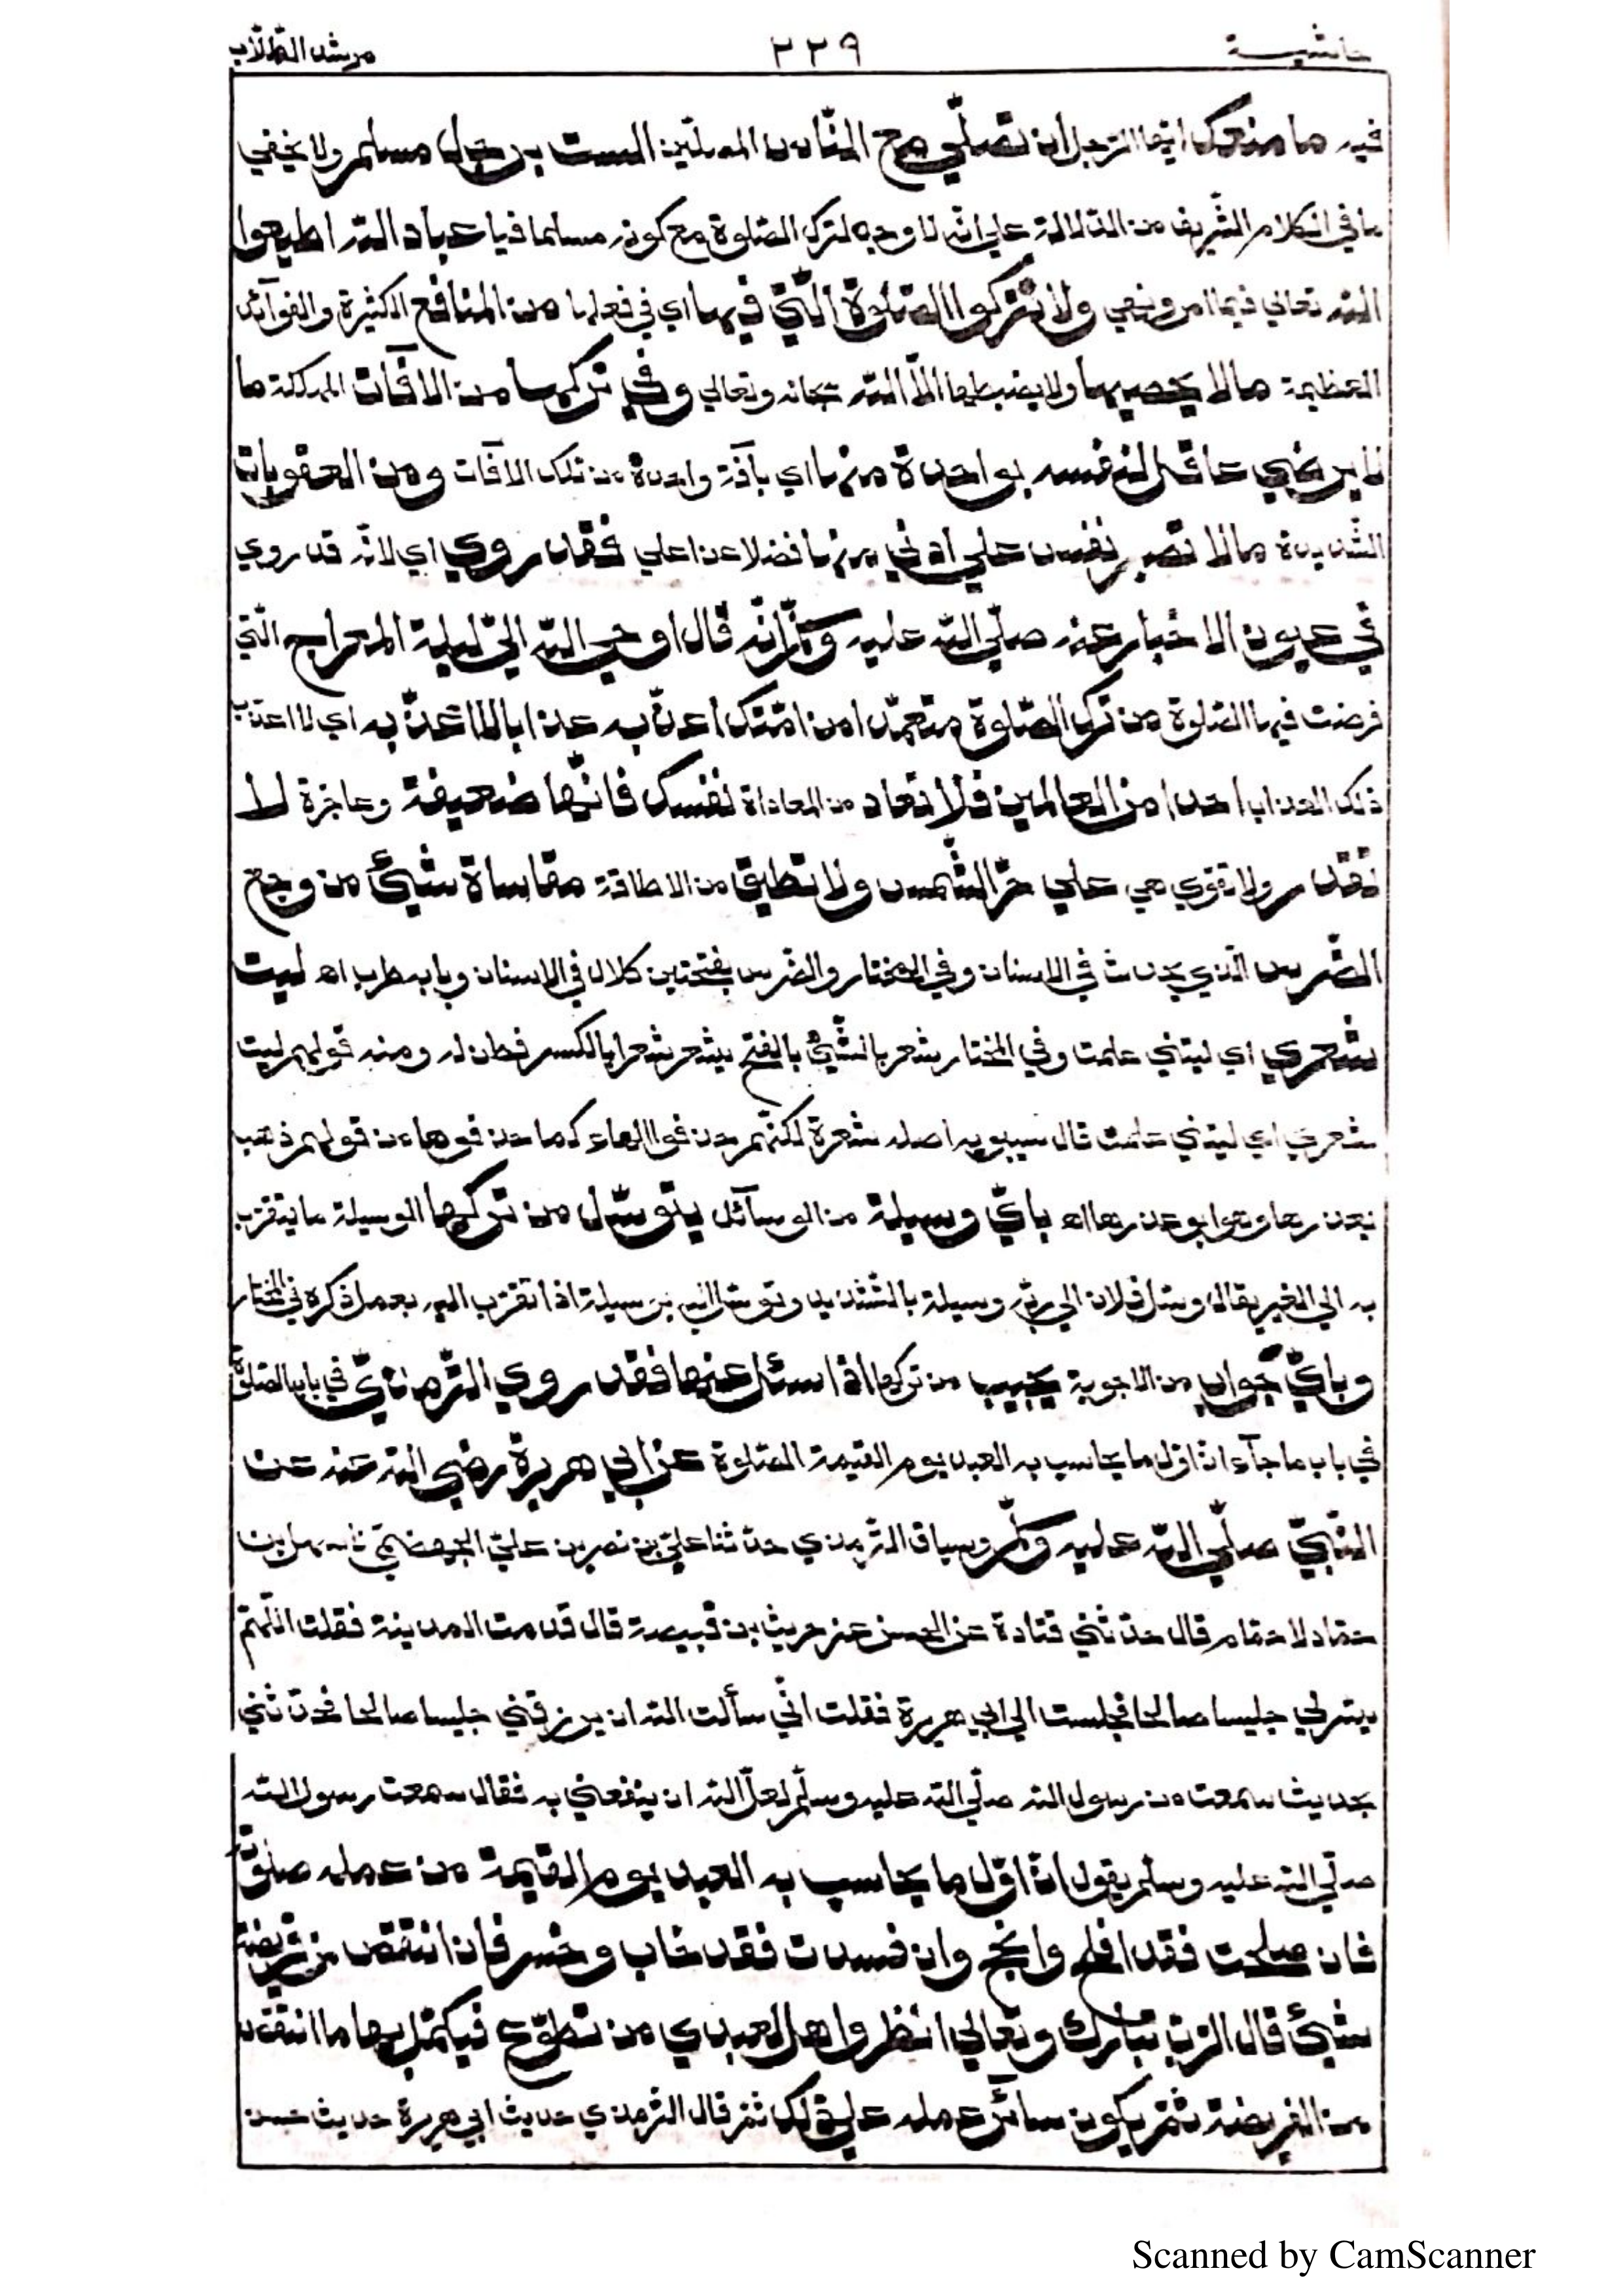 حاشية ٢٢٩ مرشد الطّلّاب
فيه ما منعك ايّها الرّجل ان تصلّي مع النّاس المصلّين الست برجل مسلم ولا يخفي
ما في الكلام الشّريف من الدّلالة علي انّه لا وجه لترك الصّلوة مع كونه مسلما فيا عباد اللّه اطيعوا
اللّه تعالي فيما امر ونهي ولا تتركوا الصّلوة الّتي فيها اي في فعلها من المنافع الكثيرة والفوآئد
العظيمة ما لا يحصيها ولا يضبطها الّا اللّه سبحانه وتعالي وفي تركها من الافآت المهلكة ما
لا يرضي عاقل لنفسه بواحدة منها اي بآفة واحدة من تلك الافآت ومن العقوبات
الشّديدة ما لا تصبر نفس علي ادني منها فضلا عن اعلي فقد روي اي لانّه قد روي
في عيون الاخبار عنه صلّي اللّه عليه وسلّم انّه قال اوحي اللّه اليّ ليلة المعراج الّتي
فرضت فيها الصّلوة من ترك الصّلوة متعمّدا من امّتك اعذّبه عذابا لا اعذّبه اي لا اعذّب
ذلك العذاب احدا من العالمين فلا تعاد من المعاداة نفسك فانّها ضعيفة وعاجزة لا
تقدر ولا تقوي هي علي حرّ الشّمس ولا تطيق من الاطاقة مقاساة شيئ من وجع
الضّرس الّذي يحدث في الاسنان وفي المختار والضّرس بفتحتين كلال في الاسنان وبابه طرب اه ليت
شعري اي ليتني علمت وفي المختار شعر بالشّيئ بالفتح يشعر شعرا بالكسر فطن له ومنه قولهم ليت
شعري اي ليتني علمت قال سيبويه اصله شعرة لكنّهم حذفوا الهاء كما حذفوها من قولهم ذهب
بعذرها وهو ابو عذرها اه بايّ وسيلة من الوسآئل يتوسّل من تركها الوسيلة ما يتقرّب
به الي الغير يقال وسّل فلان الي ربّه وسيلة بالتّشديد وتوسّل اليه بوسيلة اذا تقرّب اليه بعمل ذكره في المختار
وبايّ جواب من الاجوبة يجيب من تركها اذا سئل عنها فقد روي التّرمذيّ في باب الصّلوة
في باب ما جآء انّ اوّل ما يحاسب به العبد يوم القيمة الصّلوة عن ابي هريرة رضي اللّه عنه عن
النّبيّ صلّي اللّه عليه وسلّم وسياق التّرمذي حدّثنا عليّ بن نصر بن عليّ الجهضميّ نا سهل بن
حمّاد نا همّام قال حدّثني قتادة عن الحسن عن حريث بن قبيصة قال قدمت المدينة فقلت اللّهمّ
يسّر لي جليسا صالحا فجلست الي ابي هريرة فقلت انّي سألت اللّه ان يرزقني جليسا صالحا فحدّثني
بحديث سمعت من رسول اللّه صلّي اللّه عليه وسلّم لعلّ اللّه ان ينفعني به فقال سمعت رسول اللّه
صلّي اللّه عليه وسلّم يقول انّ اوّل ما يحاسب به العبد يوم القيمة من عمله صلوته
فان صلحت فقد افلح وانجح وان فسدت فقد خاب وخسر فان انتقص من فريضة
شيئ قال الرّبّ تبارك وتعالي انظروا هل لعبدي من تطوّع فيكمّل بها ما انتقص
من الفريضة ثمّ يكون سآئر عمله علي ذلك ثمّ قال التّرمذي حديث ابي هريرة حديث حسن
Scanned by CamScanner